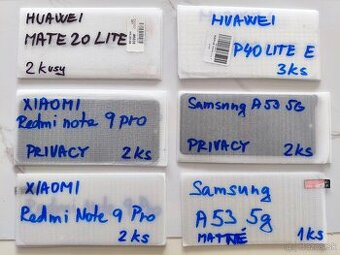 HUAWEI
MATE 20 LITE
2 kusy
HUAWEI
P40 LITE E
3ks
XIAOMI
Redmi note 9 pro
PRIVACY 2ks
Samsnng A53 5G
PRIVACY 2ks
XIAOMI
Redmi Note 9 Pro
2ks
Samsung
A53 5g
MATNÉ 1ks